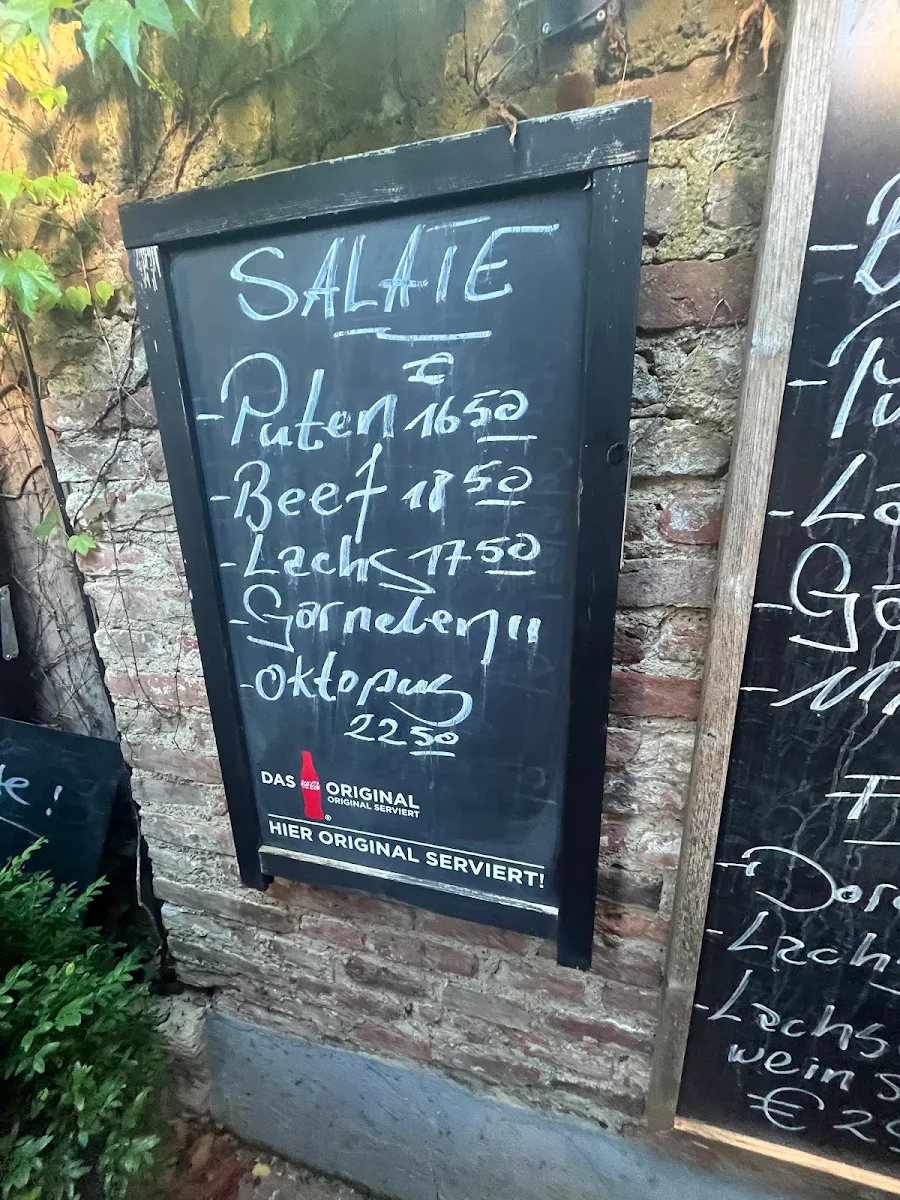 SALATE
- Puten 16 50
- Beef 18 50
- Lachs 17 50
- Garnelen "
- Oktopus
22 50
DAS Coca-Cola ORIGINAL
ORIGINAL SERVIERT
HIER ORIGINAL SERVIERT!
te !
- Lachs
- Lachs
wein
€ 2